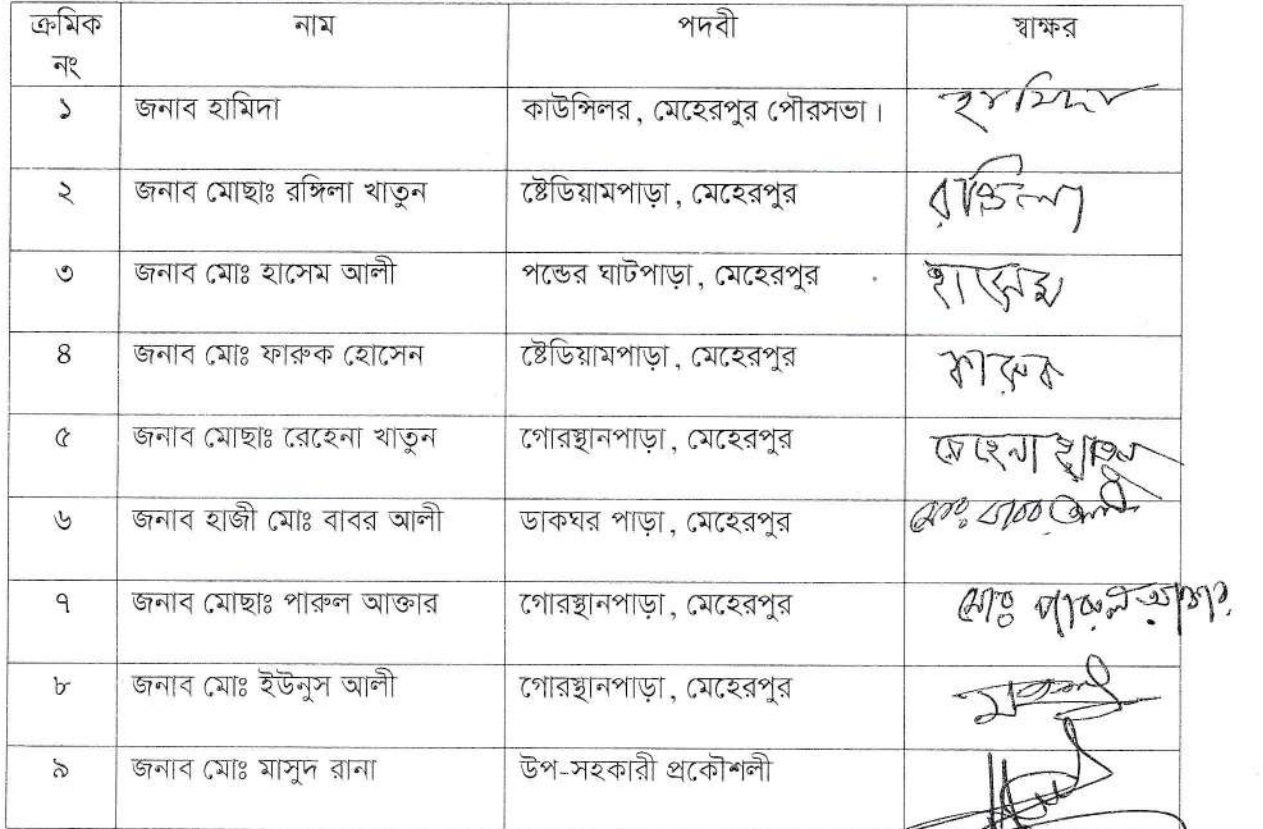 ক্রমিক নং নাম পদবী স্বাক্ষর
১ জনাব হামিদা কাউন্সিলর, মেহেরপুর পৌরসভা। হামিদা
২ জনাব মোছাঃ রঙ্গিলা খাতুন ষ্টেডিয়ামপাড়া, মেহেরপুর রঙ্গিলা
৩ জনাব মোঃ হাসেম আলী পন্ডের ঘাটপাড়া, মেহেরপুর হাসেম
৪ জনাব মোঃ ফারুক হোসেন ষ্টেডিয়ামপাড়া, মেহেরপুর ফারুক
৫ জনাব মোছাঃ রেহেনা খাতুন গোরস্থানপাড়া, মেহেরপুর রেহেনা খাতুন
৬ জনাব হাজী মোঃ বাবর আলী ডাকঘর পাড়া, মেহেরপুর মোঃ বাবর আলী
৭ জনাব মোছাঃ পারুল আক্তার গোরস্থানপাড়া, মেহেরপুর মোছাঃ পারুল আক্তার
৮ জনাব মোঃ ইউনুস আলী গোরস্থানপাড়া, মেহেরপুর
৯ জনাব মোঃ মাসুদ রানা উপ-সহকারী প্রকৌশলী